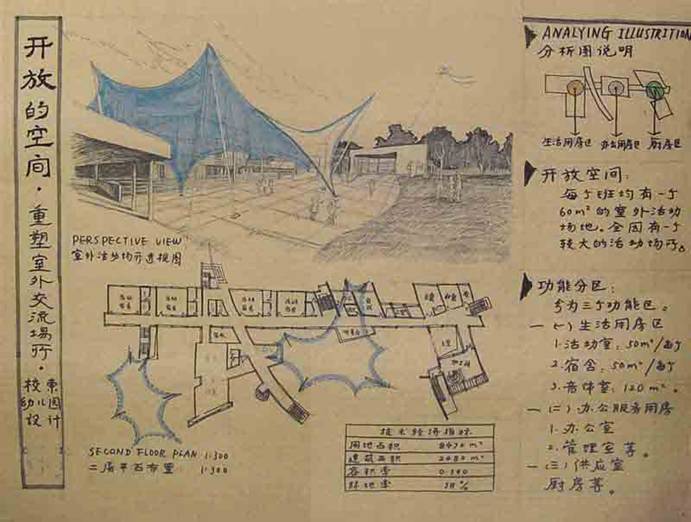 开放的空间·重塑室外交流場所·
校東
幼儿园
设计
PERSPECTIVE VIEW
室外活动场所透视图
SECOND FLOOR PLAN 1:300
二层平面布置 1:300
技术经济指标
用地面积
建筑面积
容积率
绿地率
ANALYING ILLUSTRITION
分析图说明
生活用房区 办公用房区 厨房区
开放空间:
每个班均有一个
60m²的室外活动
场地。全园有一个
较大的活动场所。
功能分区:
分为三个功能区。
(一)生活用房区
1.活动室:50m²/每个
2.宿舍:50m²/每个
3.音体室:120m²。
(二)办公服务用房
1.办公室
2.管理室等。
(三)供应室
厨房等。